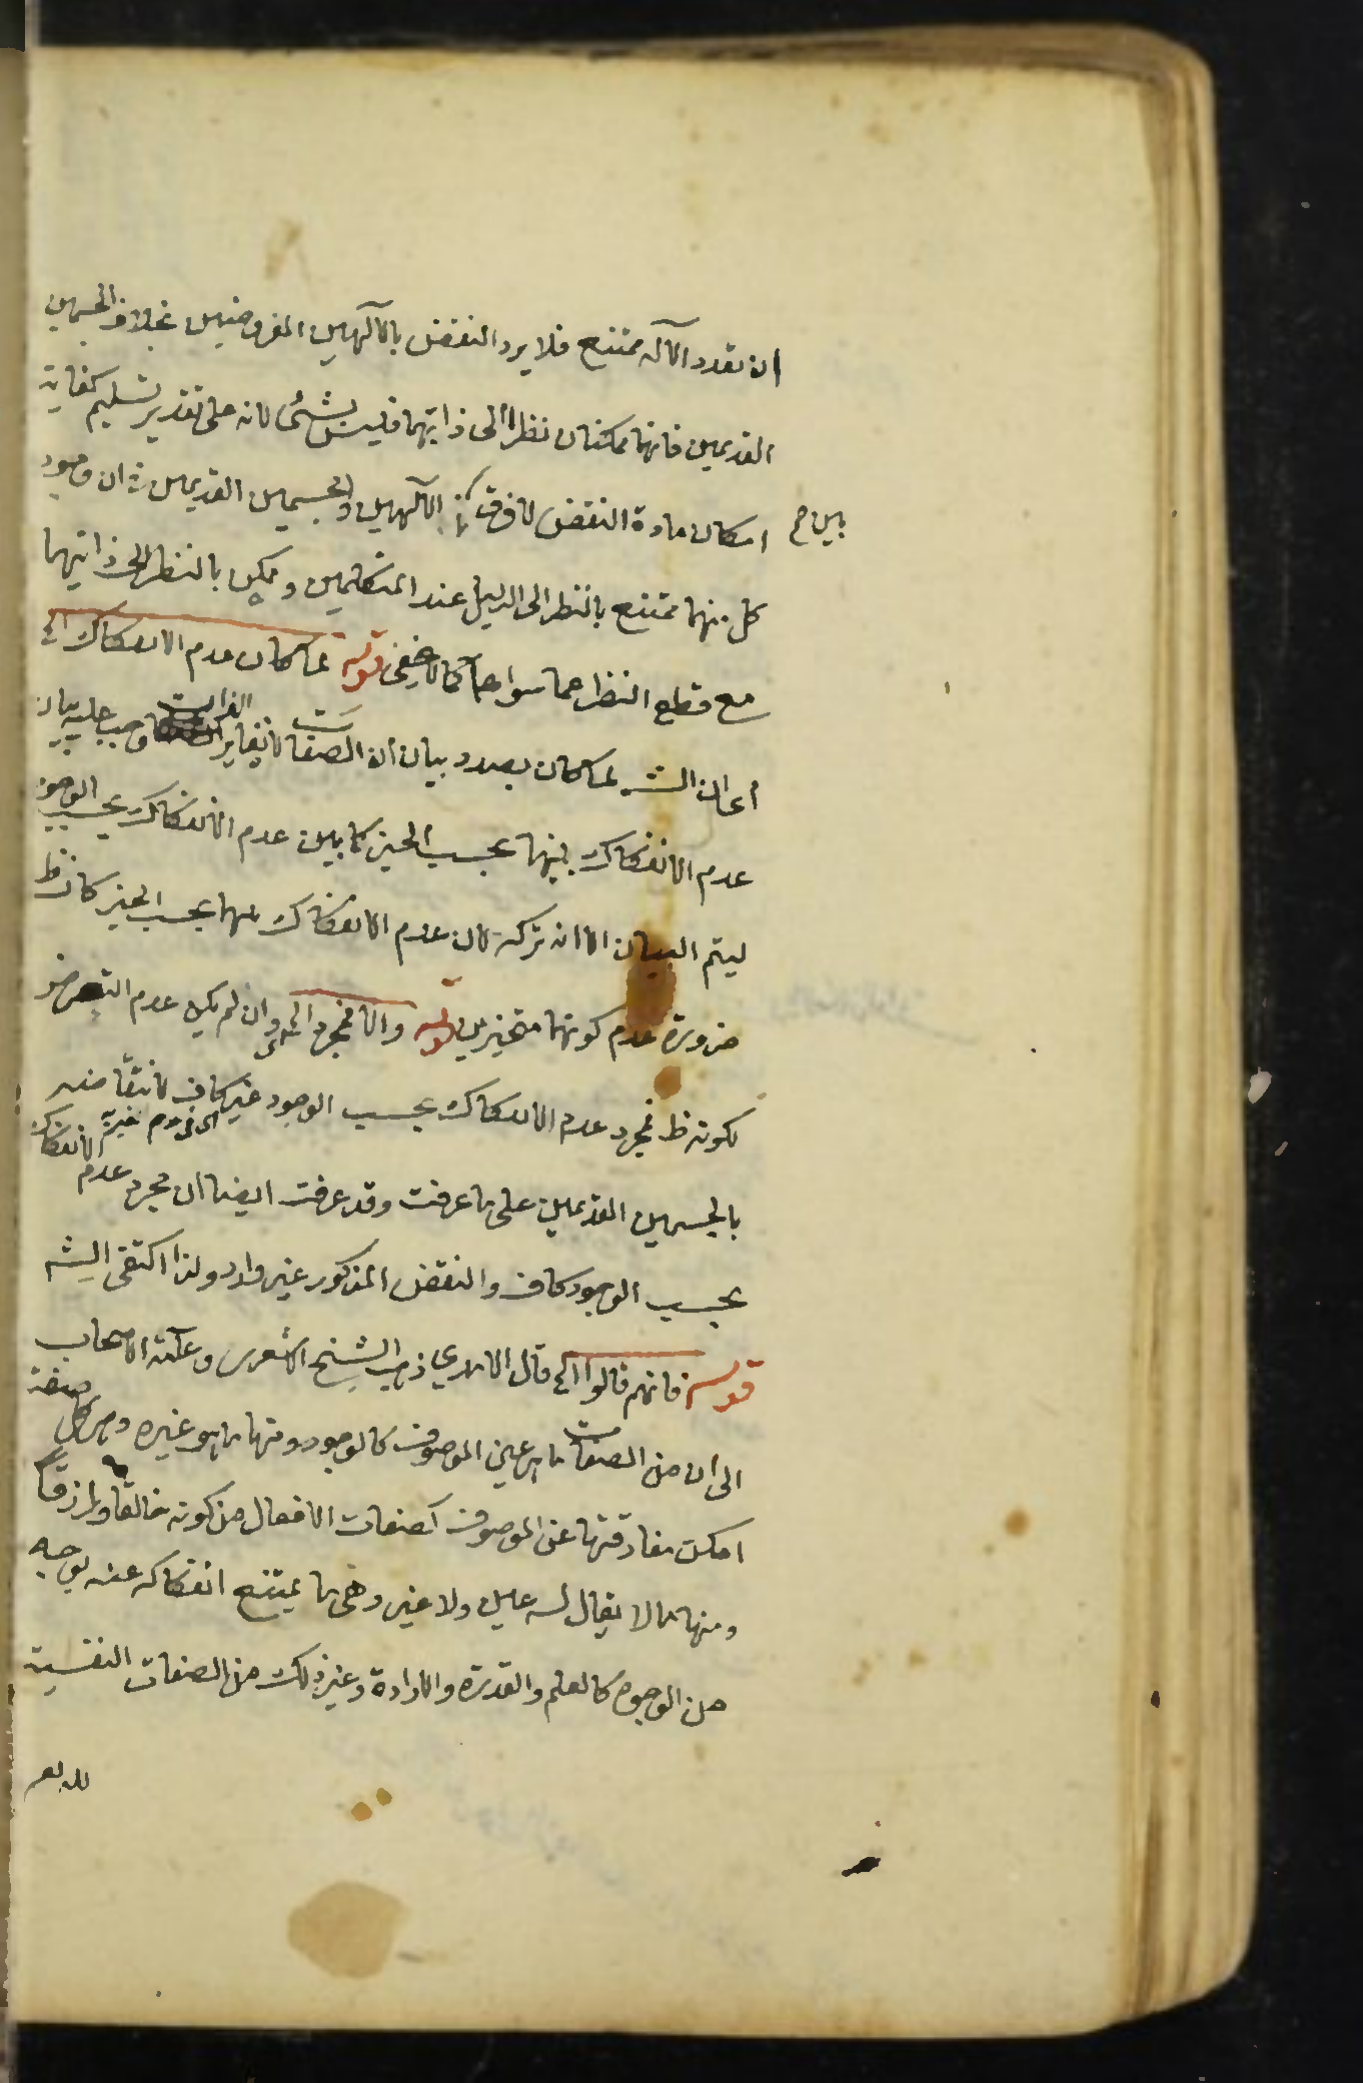 ان تعدد الآله ممتنع فلا يرد النقض بالآلهين المفروضين بخلاف الجسمين
القديمين فانهما ممكنان نظرا الى ذاتيهما فليس بشئ لانه على تقدير تسليم كفاية
امكان مادة النقض لا فرق بين الآلهين والجسمين القديمين ان وجود
بين صح
كل منهما ممتنع بالنظر الى الدليل عند المتكلمين وممكن بالنظر الى ذاتيهما
مع قطع النظر عما سواهما كما لا يخفى قوله لما كان عدم الانفكاك الخ
الذات
اعلم ان الش لما كان بصدد بيان ان الصفات لا تغاير وجب عليه بيان
عدم الانفكاك بينهما بحسب الحيز كما بين عدم الانفكاك بحسب الوجود
ليتم البيان الا انه تركه لان عدم الانفكاك بينهما بحسب الحيز كان ظ
ضرورة عدم كونهما متحيزين قوله والا فمجرد الخ اى وان لم يكن عدم التعرض
لكونه ظ فمجرد عدم الانفكاك بحسب الوجود غير كاف لانتقاضه
بالجسمين القديمين على ما عرفت وقد عرفت ايضا ان مجرد عدم الانفكاك
بحسب الوجود كاف والنقض المذكور غير وارد ولذا اكتفى الش
قوله فانهم قالوا الخ قال الامدي ذهب الشيخ الاشعرى وعامة الاصحاب
الى ان من الصفات ما هى عين الموصوف كالوجود ومنها ما هو غيره وهى كل صفة
امكن مفارقتها عن الموصوف كصفات الافعال من كونه خالقا ورازقا
ومنها ما لا يقال له عين ولا غير وهى ما يمتنع انفكاكه عنه بوجه
من الوجوه كالعلم والقدرة والارادة وغير ذلك من الصفات النفسية